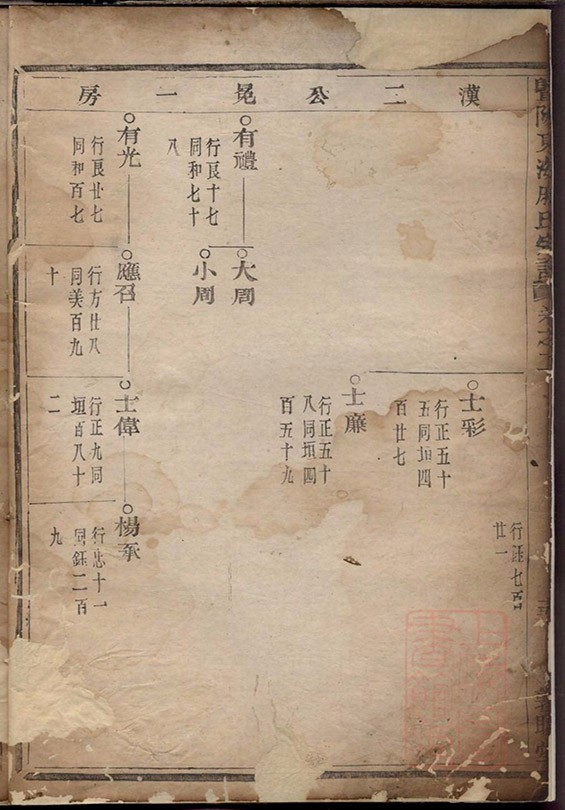 漢二公冕一房
士彩
行正五十
五同垣四
百廿七
行鈺七百
廿一
士廉
行正五十
八同垣四
百五十九
有禮
行良十七
同和七十
八
大周
小周
有光
行良廿七
同和百七
應召
行方廿八
同美百九
十
士偉
行正九同
垣百八十
二
楊承
行忠十一
同鈺二百
九